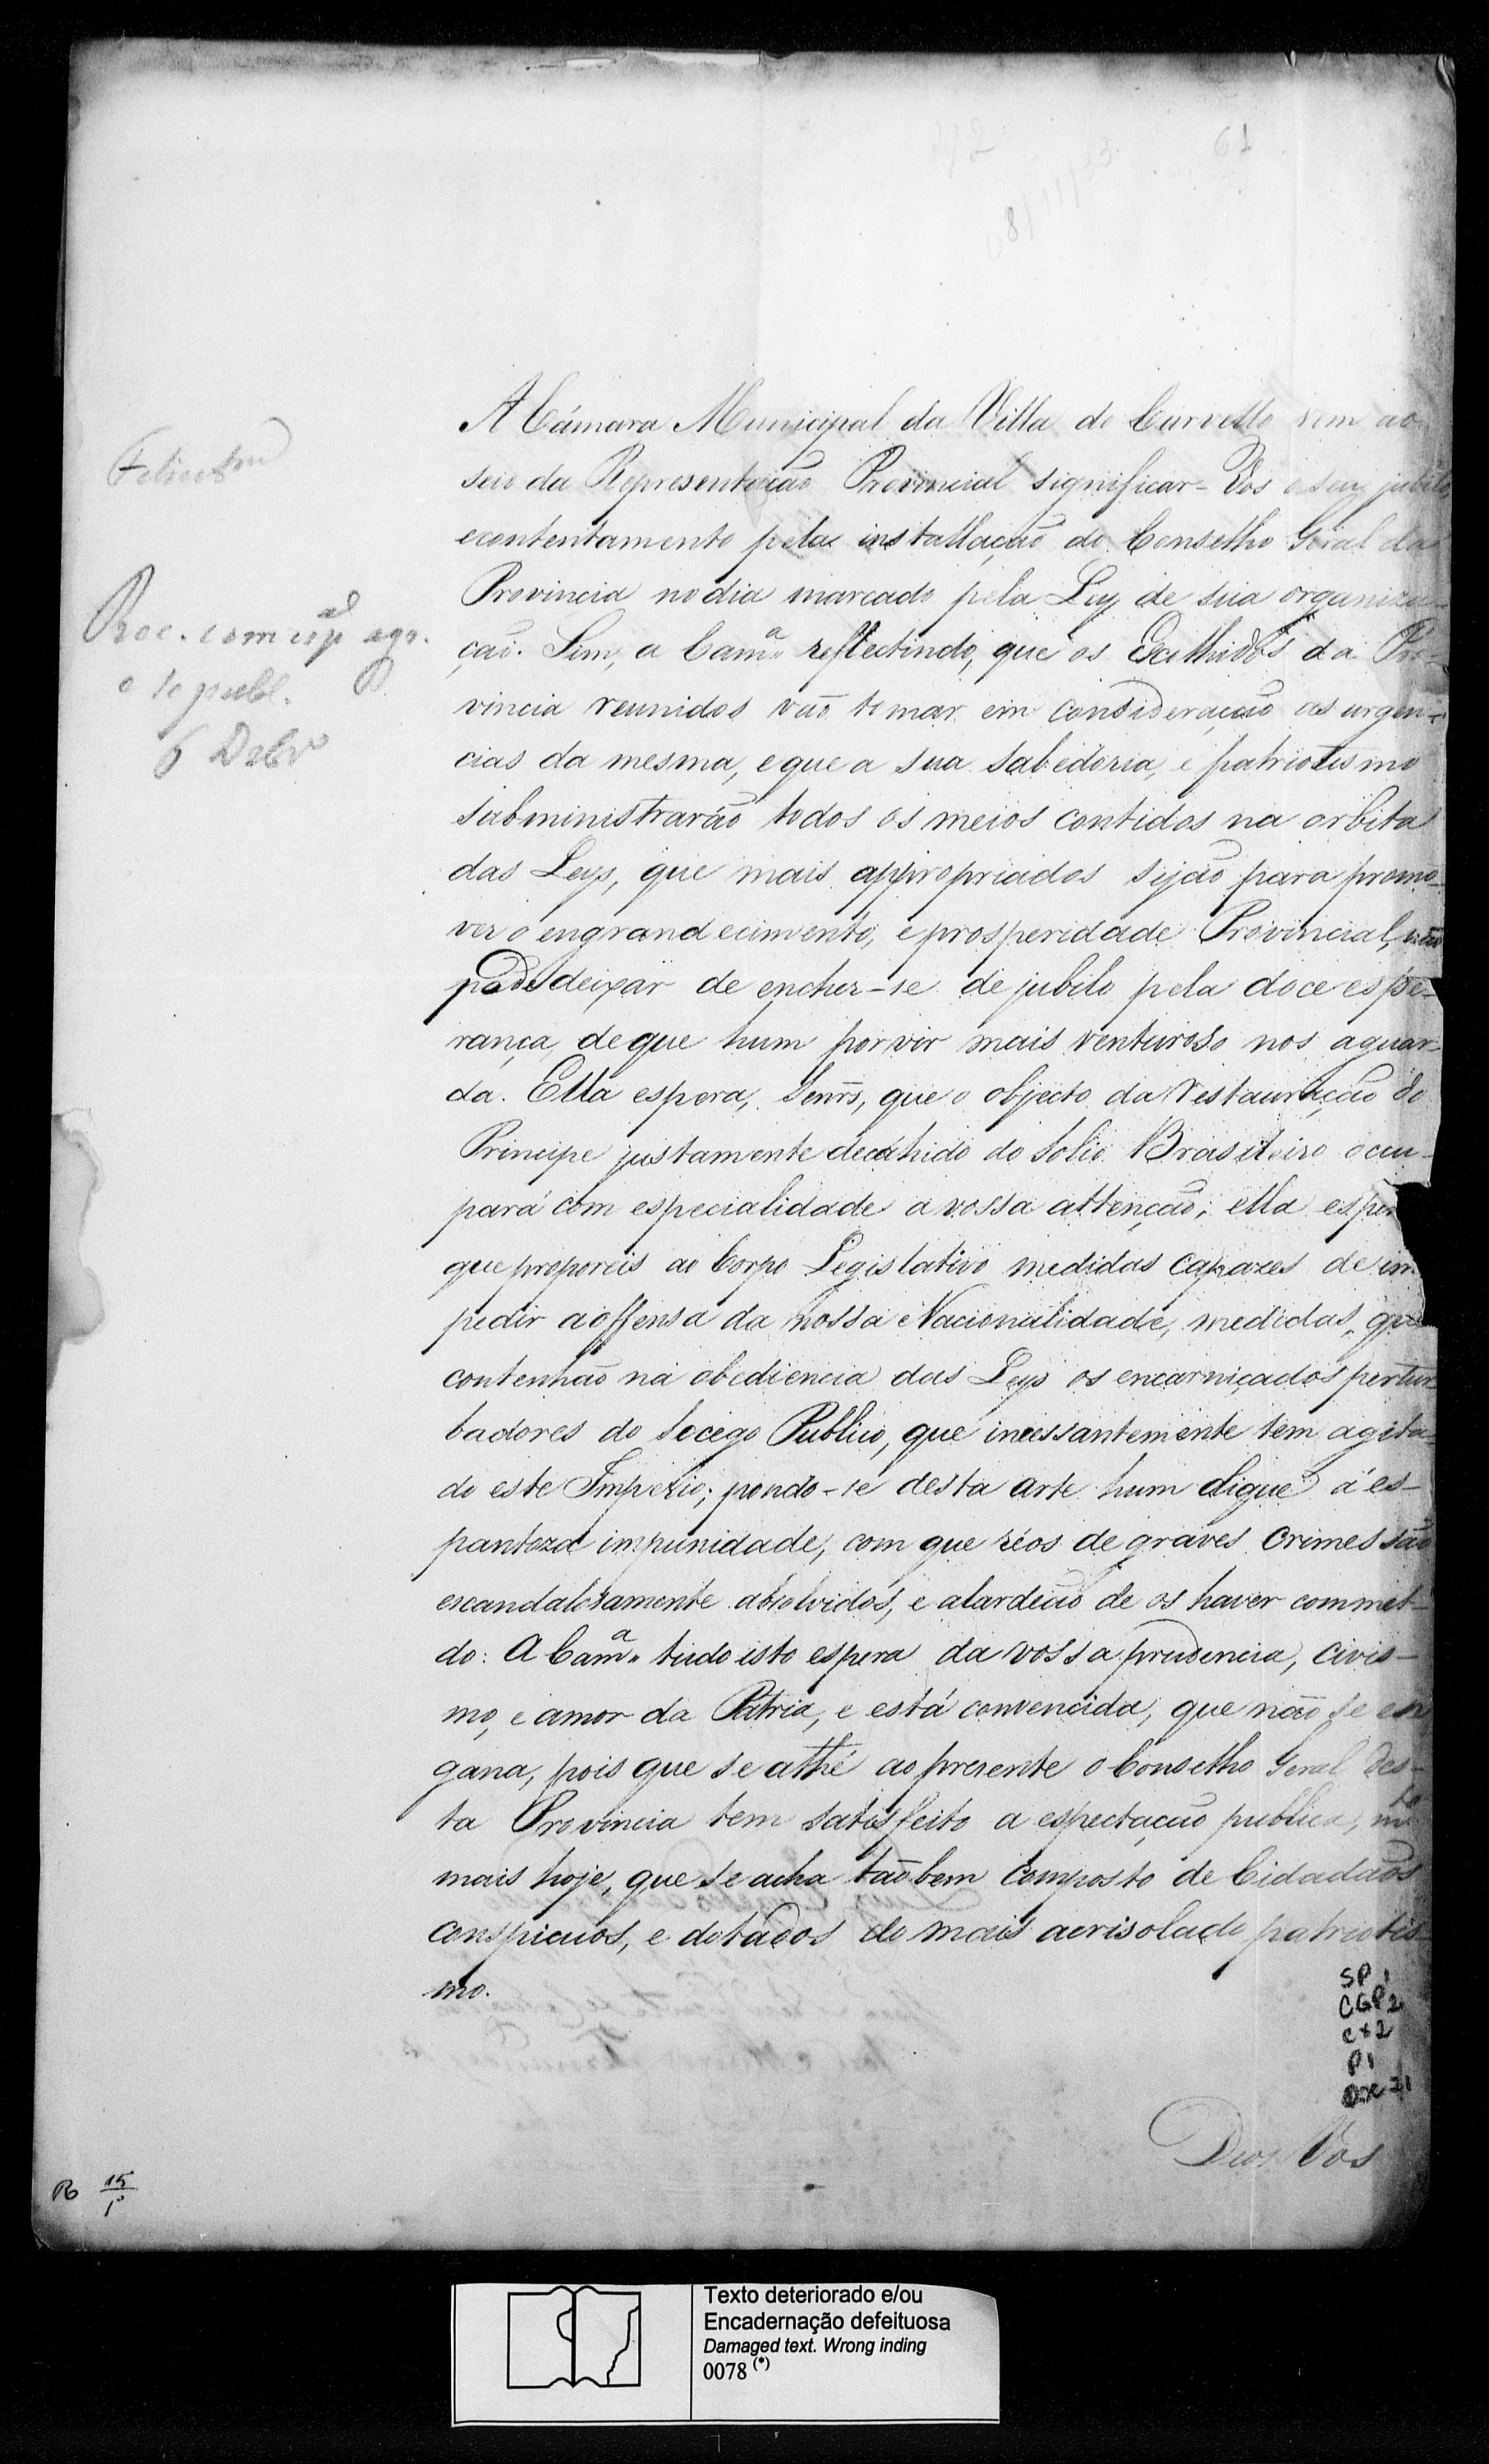 61
8/11/33
A Cámara Municipal da Villa do Curvello vem ao
seio da Representação Provincial significar-Vos o seu jubilo,
e contentamento pela installação do Conselho Geral da
Provincia no dia marcado pela Ley de sua organiza-
ção. Sim, a Camª reflectindo, que os Escolhidos da Pro-
vincia reunidos vão tomar em consideração as urgen-
cias da mesma, e que a sua sabedoria, e patriotismo
subministrarão todos os meios contidos na orbita
das Leys, que mais appropriados sejão para promo-
ver o engrandecimento, e prosperidade Provincial, não
pode deixar de encher-se de jubilo pela doce espe-
rança, de que hum porvir mais venturoso nos aguar-
da. Ella espera, Senrs, que o objecto da restauração do
Principe justamente decahido do Solio Brasileiro ocu-
pará com especialidade a vossa attenção; ella esper
que proporeis ao Corpo Legislativo medidas capazes de im
pedir a offensa da nossa Nacionalidade, medidas, que
contenhão na obediencia das Leys os encarniçados pertur-
badores do Socego Publico, que incessantemente tem agita-
do este Imperio; pondo-se desta arte hum dique á es-
pantoza impunidade, com que réos de graves crimes são
escandalozamente absolvidos, e alardeião de os haver commet-
do: A Camª tudo isto espera da vossa prudencia, civis-
mo, e amor da Patria, e está convencida, que não se en
gana, pois que se athé ao presente o Conselho Geral des-
ta Provincia tem satisfeito a espectação publica, mto
mais hoje, que se acha tão bem composto de Cidadãos
conspicuos, e dotados do mais acrisolado patriotis-
mo.
Deos Vos
Rec. com espal agr.
e se publ.
6 Dzbro
SP 1
CGP 2
P1
15
1º
Texto deteriorado e/ou
Encadernação defeituosa
Damaged text. Wrong inding
0078 (*)